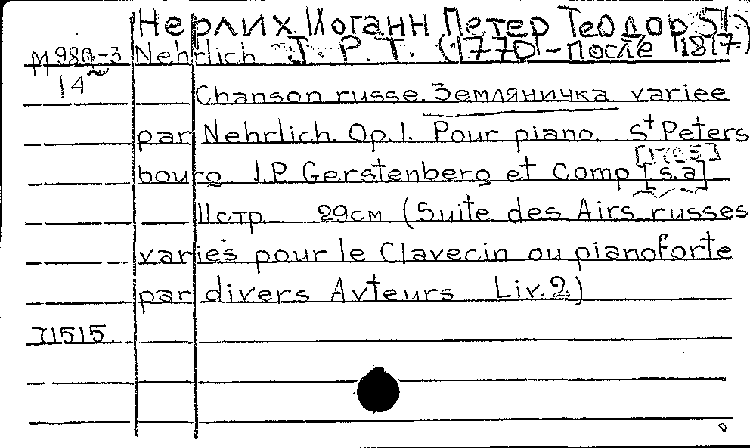 Нерлих Иоганн Петер Теодор
М 980-3 Nehrlich J. P. T. (1770 - после 1817)
14
Chanson russe. Земляничка variee
par Nehrlich. Op. 1. Pour piano. St Peters
bourg J.P. Gerstenberg et Comp [s.a]
11стр. 29см (Suite des Airs russes
varies pour le Clavecin ou pianoforte
par divers Avteurs Liv. 2.)
71515